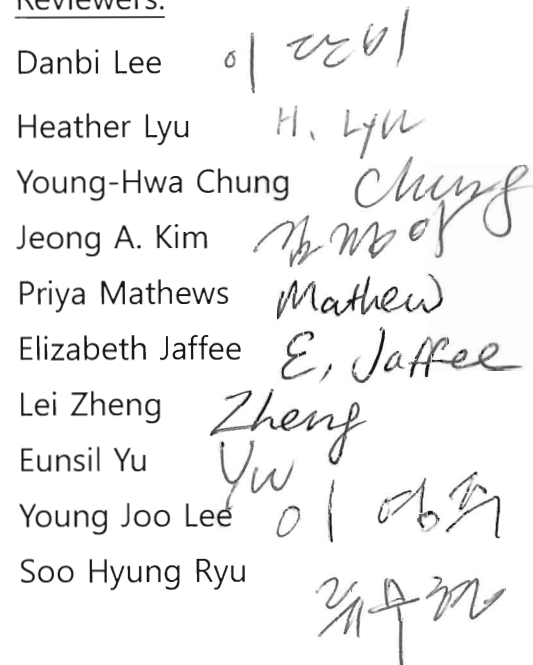 Reviewers:
Danbi Lee 이단비
Heather Lyu H. Lyu
Young-Hwa Chung Chung
Jeong A. Kim 김정아
Priya Mathews Mathew
Elizabeth Jaffee E, Jaffee
Lei Zheng Zheng
Eunsil Yu Yu
Young Joo Lee 이영주
Soo Hyung Ryu 류수형